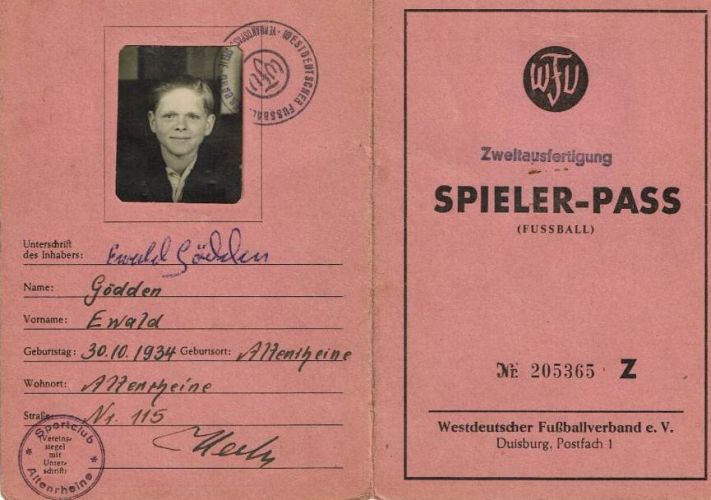 WESTDEUTSCHER FUSSBALL-
Unterschrift
des Inhabers: Ewald Gödden
Name: Gödden
Vorname: Ewald
Geburtstag: 30.10.1934 Geburtsort: Altenrheine
Wohnort: Altenrheine
Straße: Nr. 115
Sportclub
(Vereins-
siegel
mit
Unter-
schrift)
Altenrheine
WFV
Zweitausfertigung
SPIELER-PASS
(FUSSBALL)
Nr. 205365 Z
Westdeutscher Fußballverband e. V.
Duisburg, Postfach 1